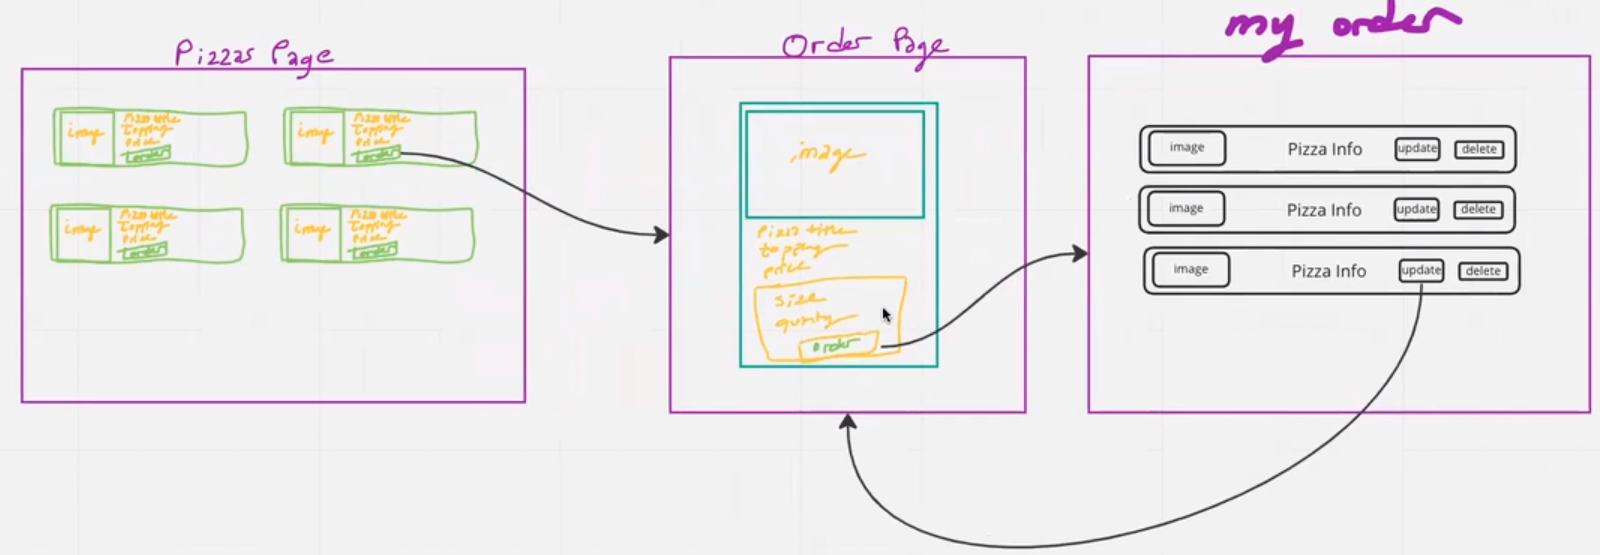 Pizzas Page
image
Pizza title
Topping
Price
order
image
Pizza title
Topping
Price
order
image
Pizza title
Topping
Price
order
image
Pizza title
Topping
Price
order
Order Page
image
Pizza title
topping
price
size
order
my order
image Pizza Info update delete
image Pizza Info update delete
image Pizza Info update delete